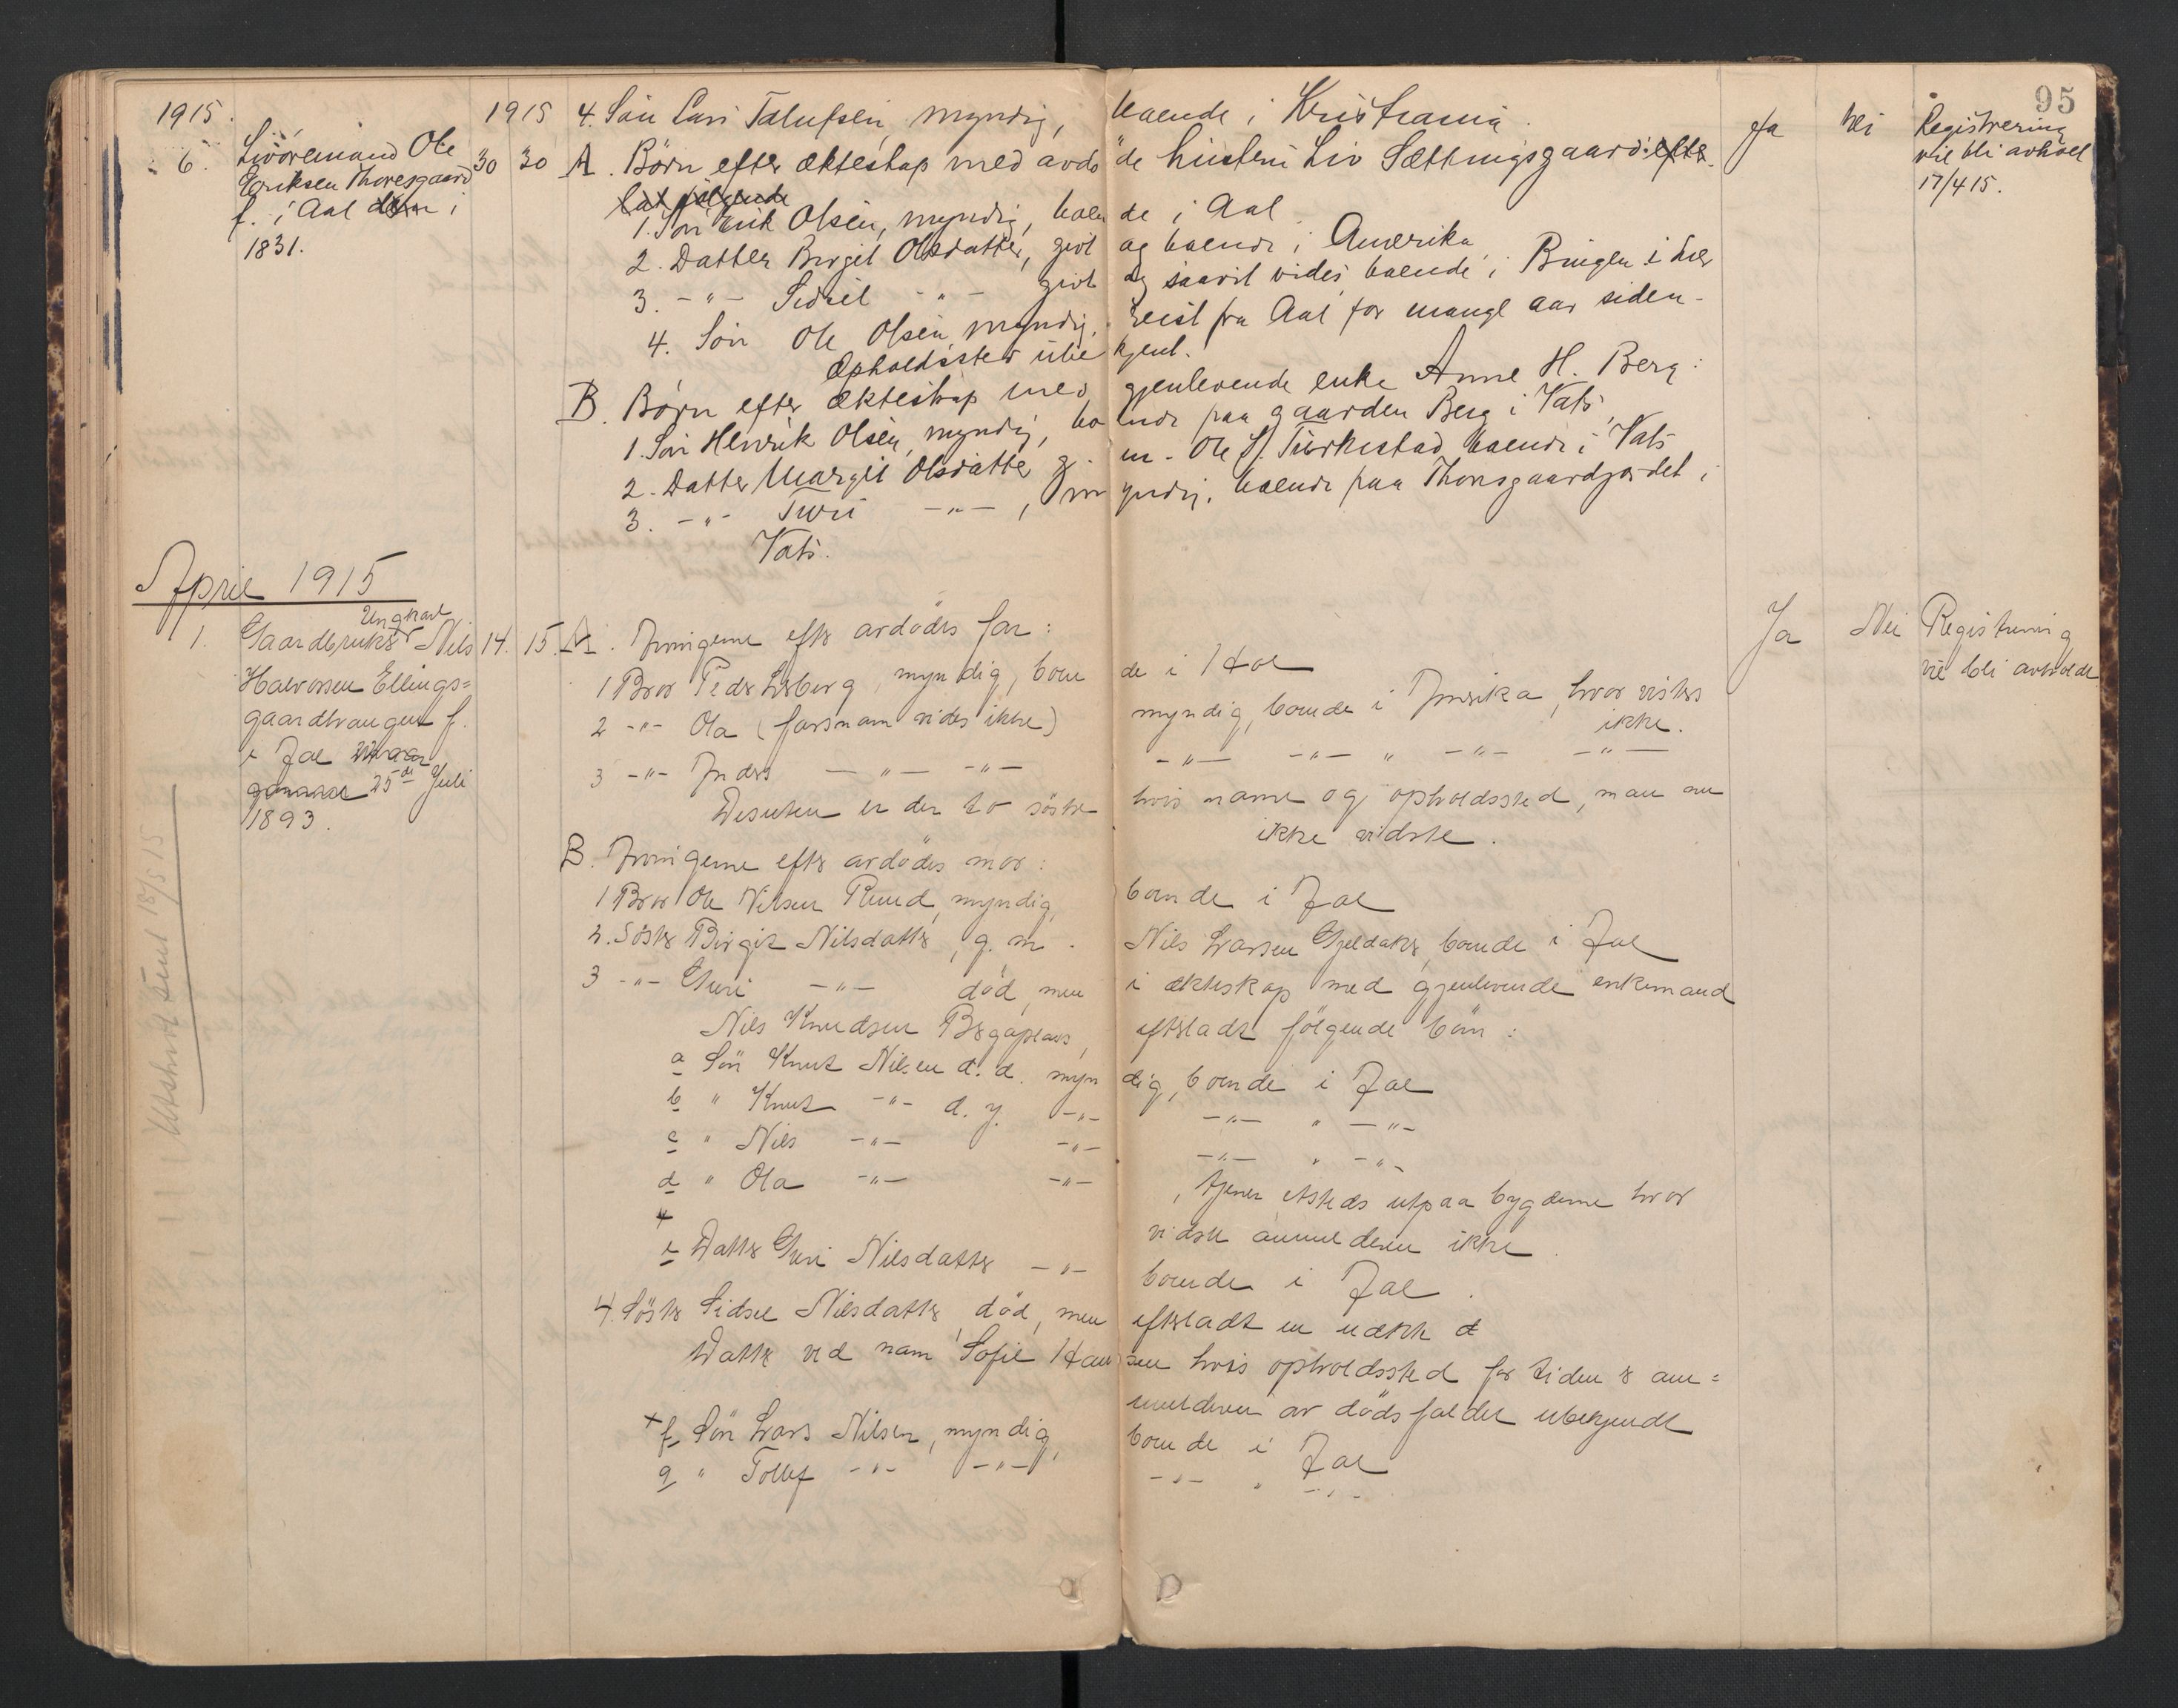 95
1915. 1915 4. Søn Lars myndig, boende i Kristiania.
6. Livøremand Ole 30 30 A. Børn efter ekteskap med avdöde hustru Liv Sættningsgaard: efter- Ja Nei Registrering
Eriksen Thoresgaard latt følgende vil bli avholt
f. i Aal i 1. Søn Erik Olsen, myndig, boende i Aal 17/4 15.
1831. 2. Datter Birgit Olsdatter, givt og boende i Amerika
3. -"- Sidsel -"- givt og saavit vides, boende i Ringen i Lier
4. Søn Ole Olsen, myndig, reist fra Aal for mange aar siden-
Opholdssted ubekjent.
B. Børn efter ekteskap med gjenlevende enke Anne H. Berg:
1. Søn Henrik Olsen, myndig, boende paa gaarden Berg i Vats,
2. Datter Margit Olsdatter g. m. Ole S. Turkestad, boende i Vats
3. -"- Turi -"-, myndig, boende paa Thorsgaardjordet i
Vats.
April 1915
Ungkar
1. Gaardbruker Nils 14. 15. A. Arvingerne efter avdødes far: Ja Nei Registrering
Halvorsen Ellings= 1 Bror Peder Lisberg, myndig, boende i Hol vil bli avholdt
gaardhaugen f. 2 -"- Ola (farsnam vides ikke) myndig, boende i Amerika, hvor vistes
i Aal ikke.
25de Juli 3 -"- Anders -"- -"- -"- -"- " -"- -"-
1893. Desuten er der to søstre hvis navne og opholdssted, man nu
ikke vidste.
B. Arvingerne efter avdødes mor:
1 Bror Ole Nilsen Ruud, myndig, boende i Aal
2. Søster Birgit Nilsdatter, g. m. Nils Larsen Gjeldaker, boende i Aal
3 -"- Guri -"- død, men i ekteskap med gjenlevende enkemand
Nils Knudsen Bergaplass, efterladt følgende børn:
a Søn Knut Nilsen d. æ. myndig, boende i Aal
b " Knut -"- d. y. -"- -"- " -"-
c " Nils -"- -"- -"- " -"-
d " Ola -"- -"- , tjener etsteds utpaa bygderne hvor
+ vidste anmelderen ikke.
e Datter Guri Nilsdatter -"- boende i Aal.
4. Søster Sidsel Nilsdatter, død, men efterladt en uekte d
Datter ved nam Sofie Hansen hvis opholdssted for tiden er an=
melderen av dødsfaldet ubekjendt
+ f Søn Lars Nilsen, myndig, boende i Aal
g " Tollef -"- -"- -"- " -"-
Utskrift sendt 18/5 15